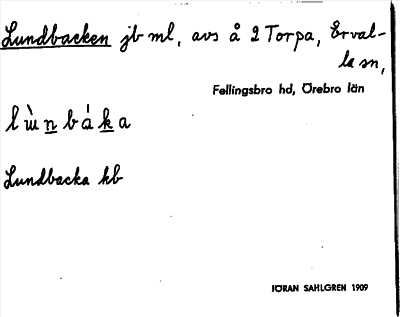 Lundbacken jb ml, avs å 2 Torpa, Erval-
la sn,
Fellingsbro hd, Örebro län
lùnbáka
Lundbacka kb
JÖRAN SAHLGREN 1909